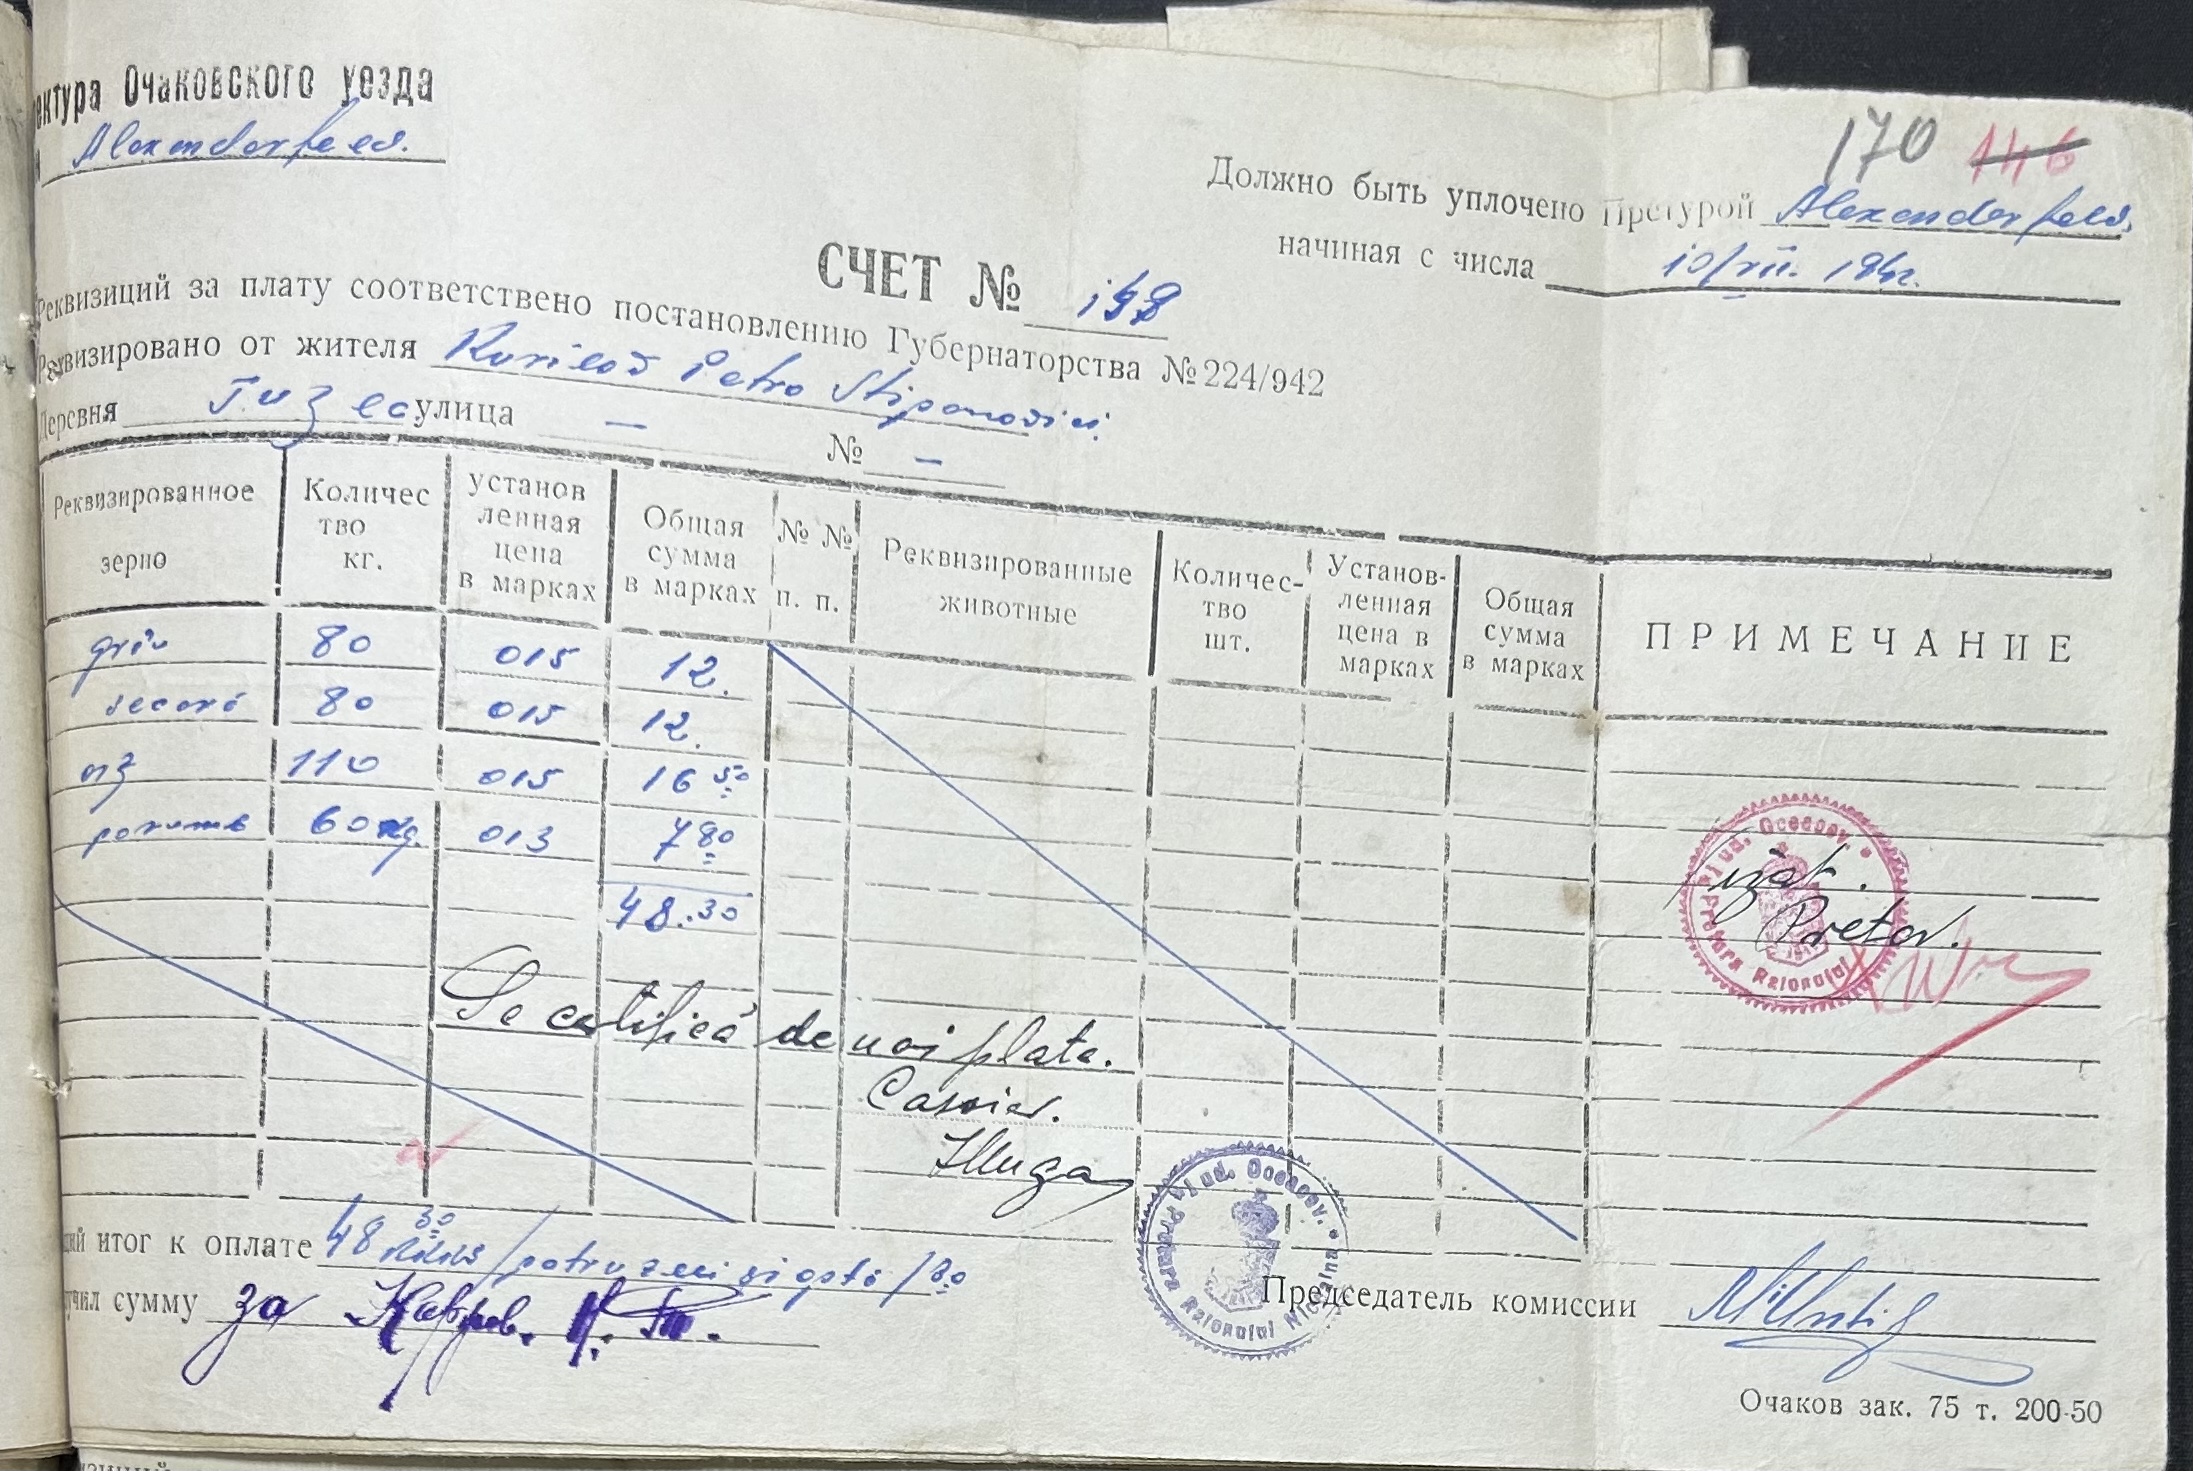 ектура Очаковского уезда
Alexenderfeld.
170 146
Должно быть уплочено Претурой Alexenderfeld.
начиная с числа 10/VII. 1942.
СЧЕТ №
Реквизиций за плату соответствено постановлению Губернаторства № 224/942
Реквизировано от жителя Petro
Деревня улица — № —
Реквизированное зерно Количес тво кг. установ ленная цена в марках Общая сумма в марках № № п. п. Реквизированные животные Количес- тво шт. Установ- ленная цена в марках Общая сумма в марках ПРИМЕЧАНИЕ
grîu 80 015 12.
secară 80 015 12.
orz 110 015 16 50
porumb 60 kg. 013 7 80
48.30
Pretura Raionului Jud. Oceacov.
Pretor.
Se certifică de noi plata.
Casier.
Pretura Raionului Nicolaina Jud. Oceacov.
щий итог к оплате 48 30 /patruzeci și opt /30
учил сумму за
Председатель комиссии
Очаков зак. 75 т. 200-50
зиций